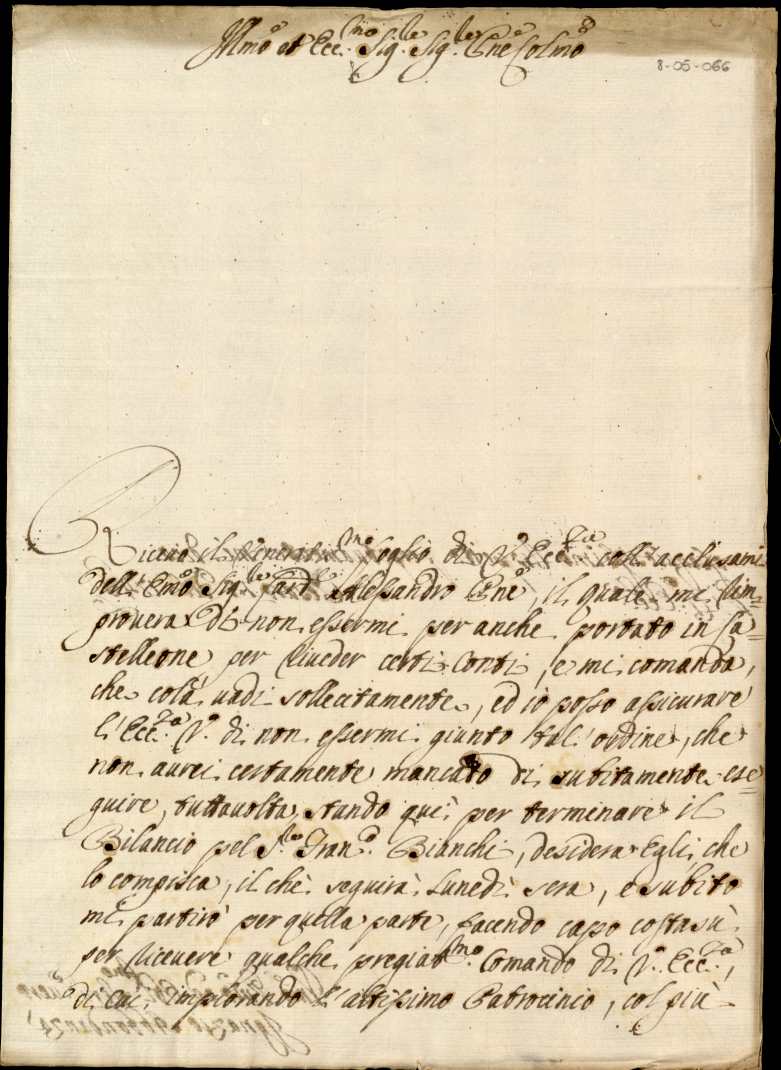 Illmo et Ecc.mo Sig.re Sig.re Pne Colmo
8-05-066
Riceuo il Veneratissmo foglio di V. Ecc.za coll'acclusami
dell'Emo Sig.re Card.l Alessandro Pne, il quale mi rim=
provera di non essermi per anche portato in Ca=
stelleone per riueder certi Conti, e mi comanda,
che colà vadi sollecitamente, ed io posso assicurare
l'Ecc.za V. di non essermi giunto tal' ordine, che
non aurei certamente mancato di subitamente ese=
guire, tuttauolta stando quì per terminare il
Bilancio pel S.re Fran.o Bianchi, desidera Egli che
lo compisca, il chè seguirà Lunedì sera, e subito
mi partirò per quella parte, facendo capo costasù
per riceuere qualche pregiatmo Comando di V. Ecc.za,
di cui implorando l'altissimo Patrocinio, col più